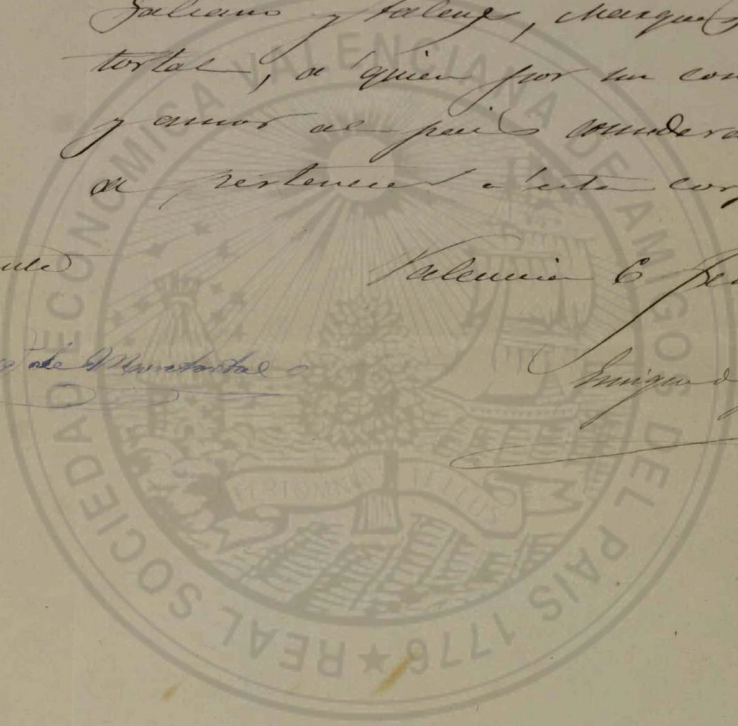 Galiano y Talens, Marques
tortal, a quien por su con
y amor al pais considera
a pertenecer a esta cor
Valencia 6
de Montortal
Enrique
REAL SOCIEDAD ECONOMICA VALENCIANA DE AMIGOS DEL PAIS 1776 ★
FERT OMNIA TELLUS